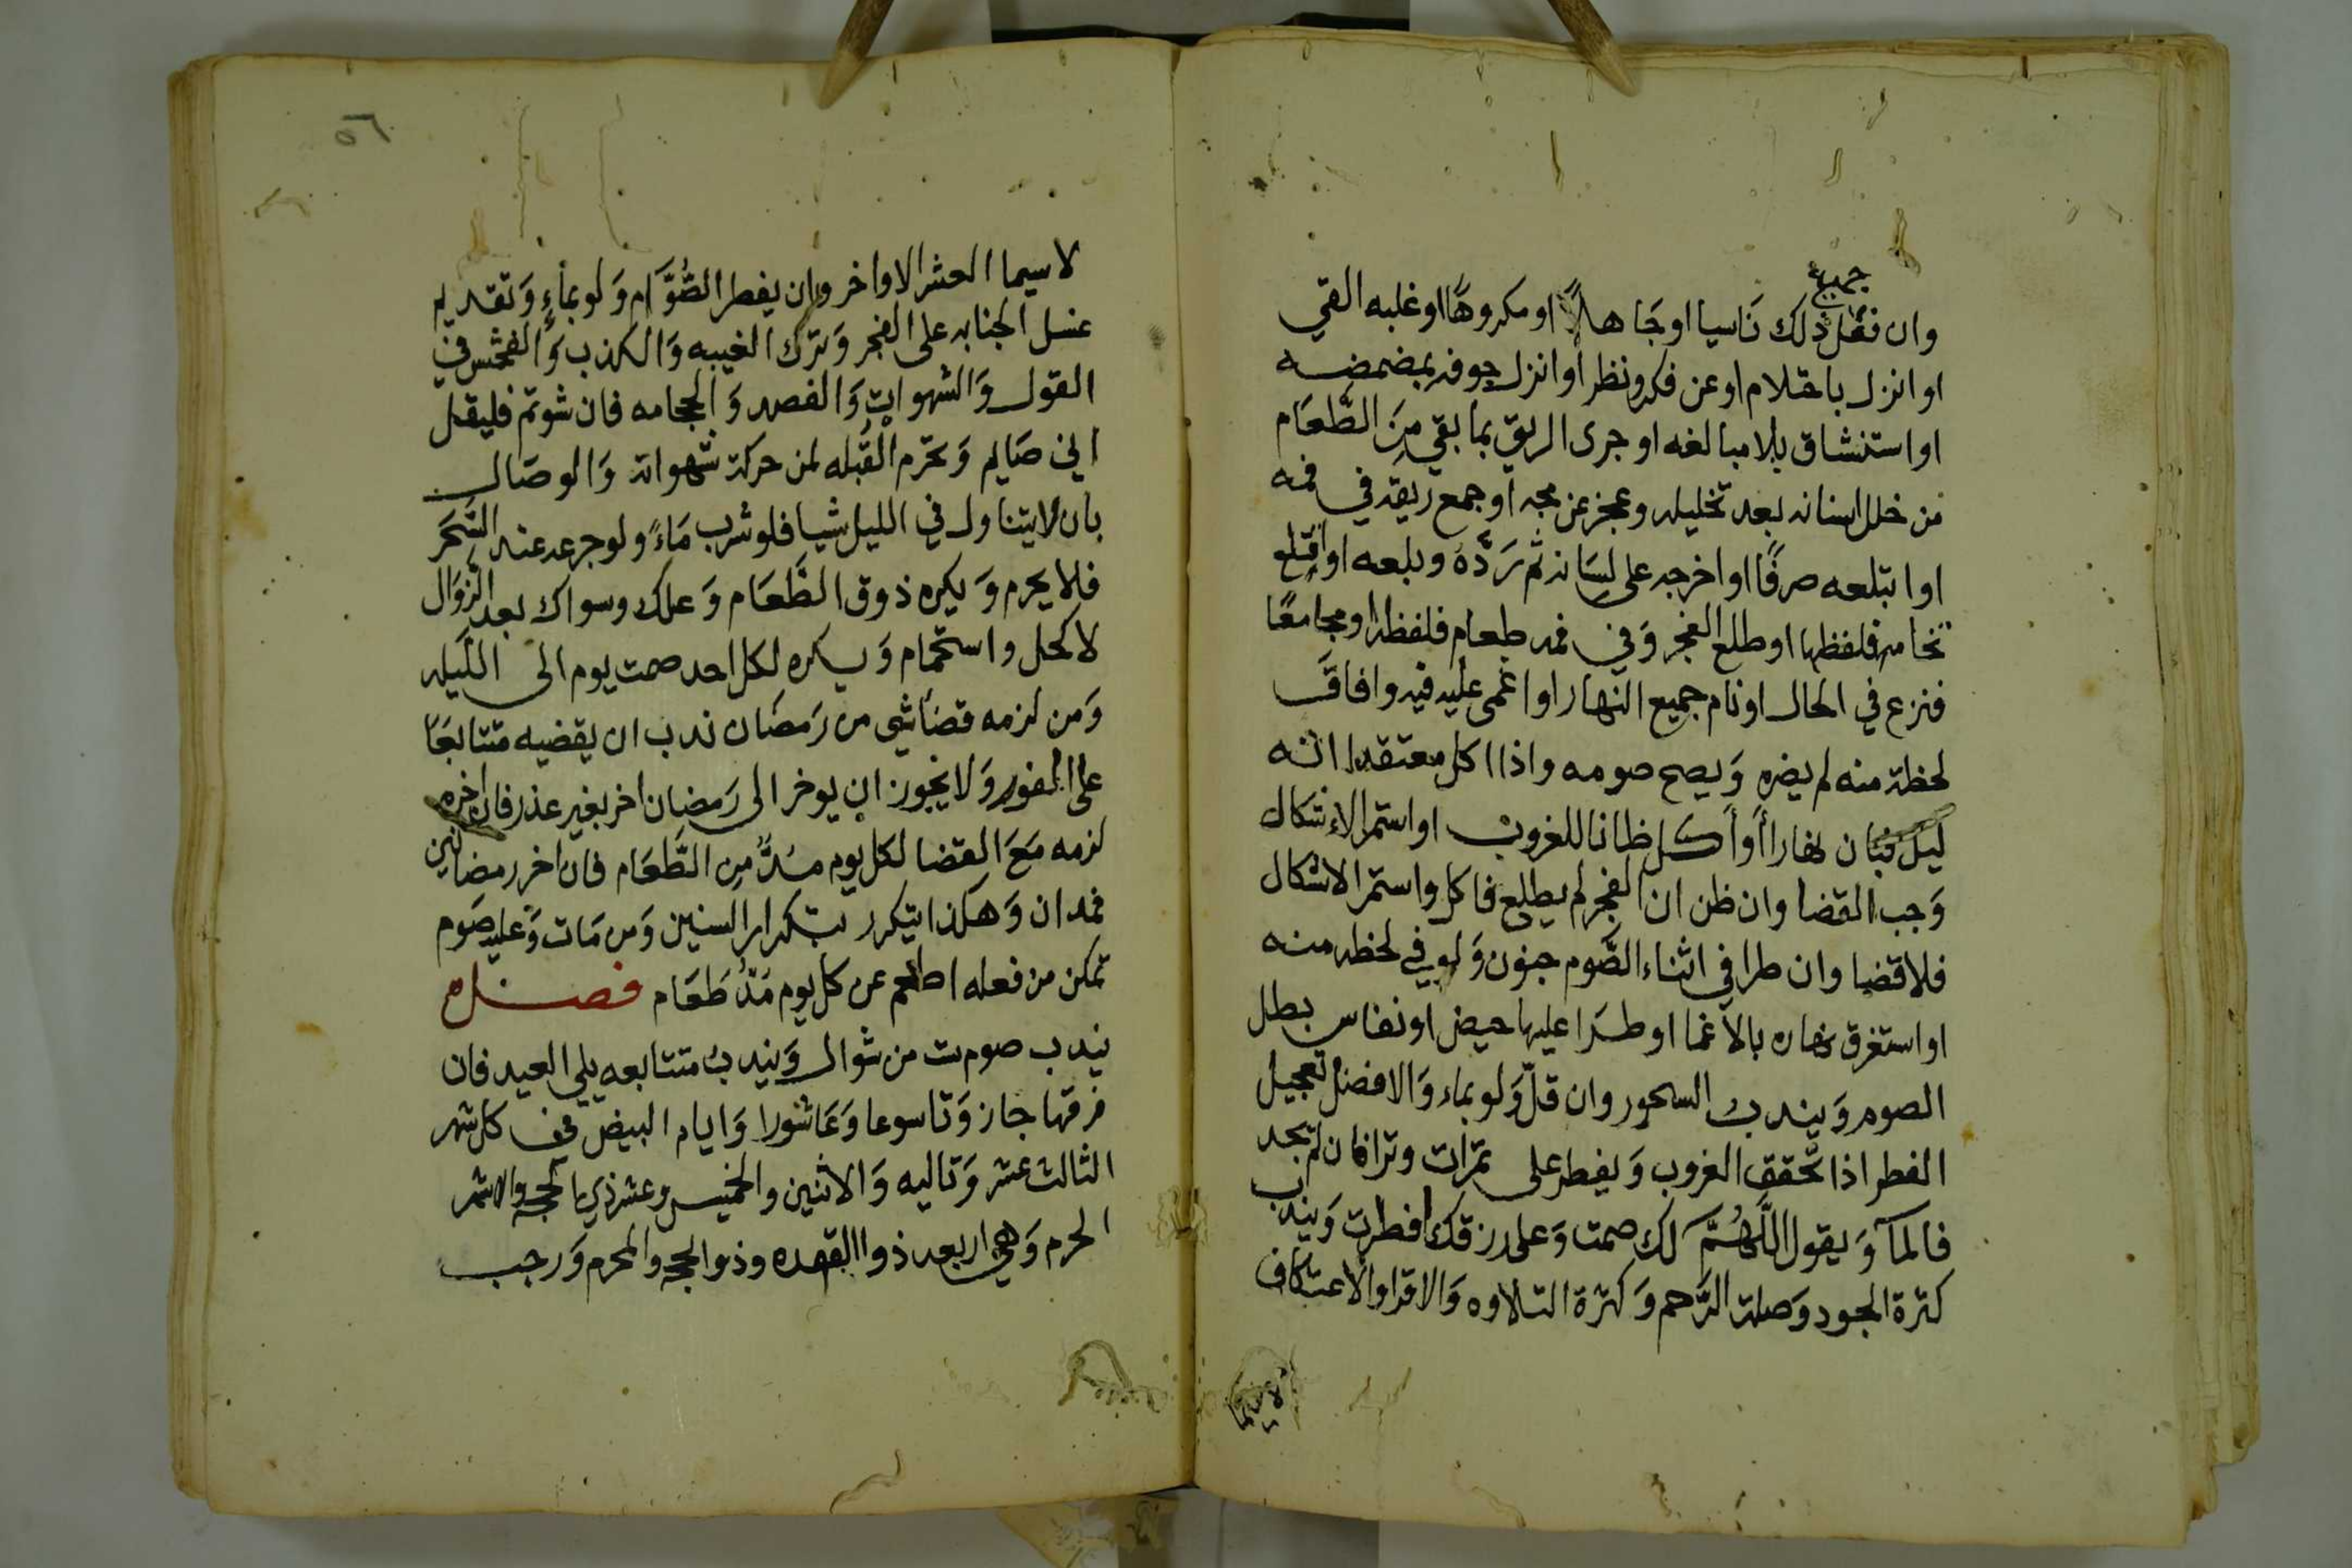 جميع
وان فعل ذلك نَاسيا اوجَاهلاً او مكروهًا اوغلبه القي
او انزل باحتلام اوعن فكر ونظر او انزل جوفه بمضمضه
او استنشاق بلا مبالغه او جرى الريق بما بقي مِنَ الطَّعَام
من خلل اسنانه بعد تخليله وعجز عن مجه او جمع ريقه في فمه
او ابتلعه صرفًا او اخرجه على لسَانه ثم رَدَّهُ وبلعه او اقتلع
نخامه فلفظها او طلع الفجر وَفي فمه طعام فلفظه او مجامعًا
فنزع في الحال او نام جميع النهار او اغمى عليه فيه وافاقَ
لحظة منه لم يضره وَيصح صومه واذا اكل معتقدا انه
ليل فبان نهارا أوأكل ظانا للغروب او استمر الاشكال
وَجب القضا وان ظن ان الفجر لم يطلع فاكل واستمر الاشكال
فلا قضا وان طرا في اثناء الصَّوم جنون وَلو في لحظه منه
او استغرق نهاره بالاغما او طَرَا عليها حيض او نفاس بطل
الصوم وَيندب السحور وان قلّ وَلو بماء وَالافضل تعجيل
الفطر اذا تحقق الغروب وَيفطر على تمرات وترا فان لم يجد
فالمآ وَيقول اللَّهُمَّ لك صمت وَعلى رزقك افطرت وَيندب
كثرة الجود وَصلة الرَّحم وَكثرة التلاوه وَالاقرا والاعتكاف
لاسيما
٥٦
لاسيما العشر الاواخر وان يفطر الصُّوَّام وَلو بماءٍ وَتقديم
غسل الجنابه على الفجر وَترك الغيبه وَالكذب وَالفحش في
القول وَالشهوات وَالفصد وَالحجامه فان شوتم فليقل
اني صَايم وَتحرم القُبله لمن حركة شهواته وَالوصَال
بان لا يتناول في الليل شيا فلو شرب مَاءً ولو جرعه عند السَّحَر
فلا يحرم وَيكره ذوق الطَّعَام وَعلك وسواك بعد الزوَال
لا كحل واستحمام وَيكره لكل احد صمت يوم الى اللَيله
وَمن لزمه قضَاشي من رَمضَان ندب ان يقضيه متتابعًا
على الفور وَلا يجوز ان يوخر الى رَمضان اخر بغير عذر فان اخره
لزمه مَعَ القضا لكل يوم مُدٌّ مِن الطَّعَام فان اخر رمضانين
فمدان وَهكذا يتكرر بتكرار السنين وَمن مَات وَعليه صَوم
تمكن من فعله اطعم عن كل يوم مُدُّ طَعَام فصل
يندب صوم ست من شوال وَيندب متتابعه يلي العيد فان
فرقها جاز وَتاسوعا وَعَاشورا وَايام البيض في كل شهر
الثالث عشر وَتاليه وَالاثنين والخميس وعشر ذي الحجه والاشهر
الحرم وَهي اربعه ذوا القعده وذوا الحجه والمحرم وَرجب